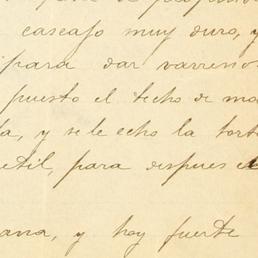 cascajo muy duro, y
para dar varreno
puesto el techo de ma
a, y se le echo la tort
etil, para despues e
ana, y hoy fuerte